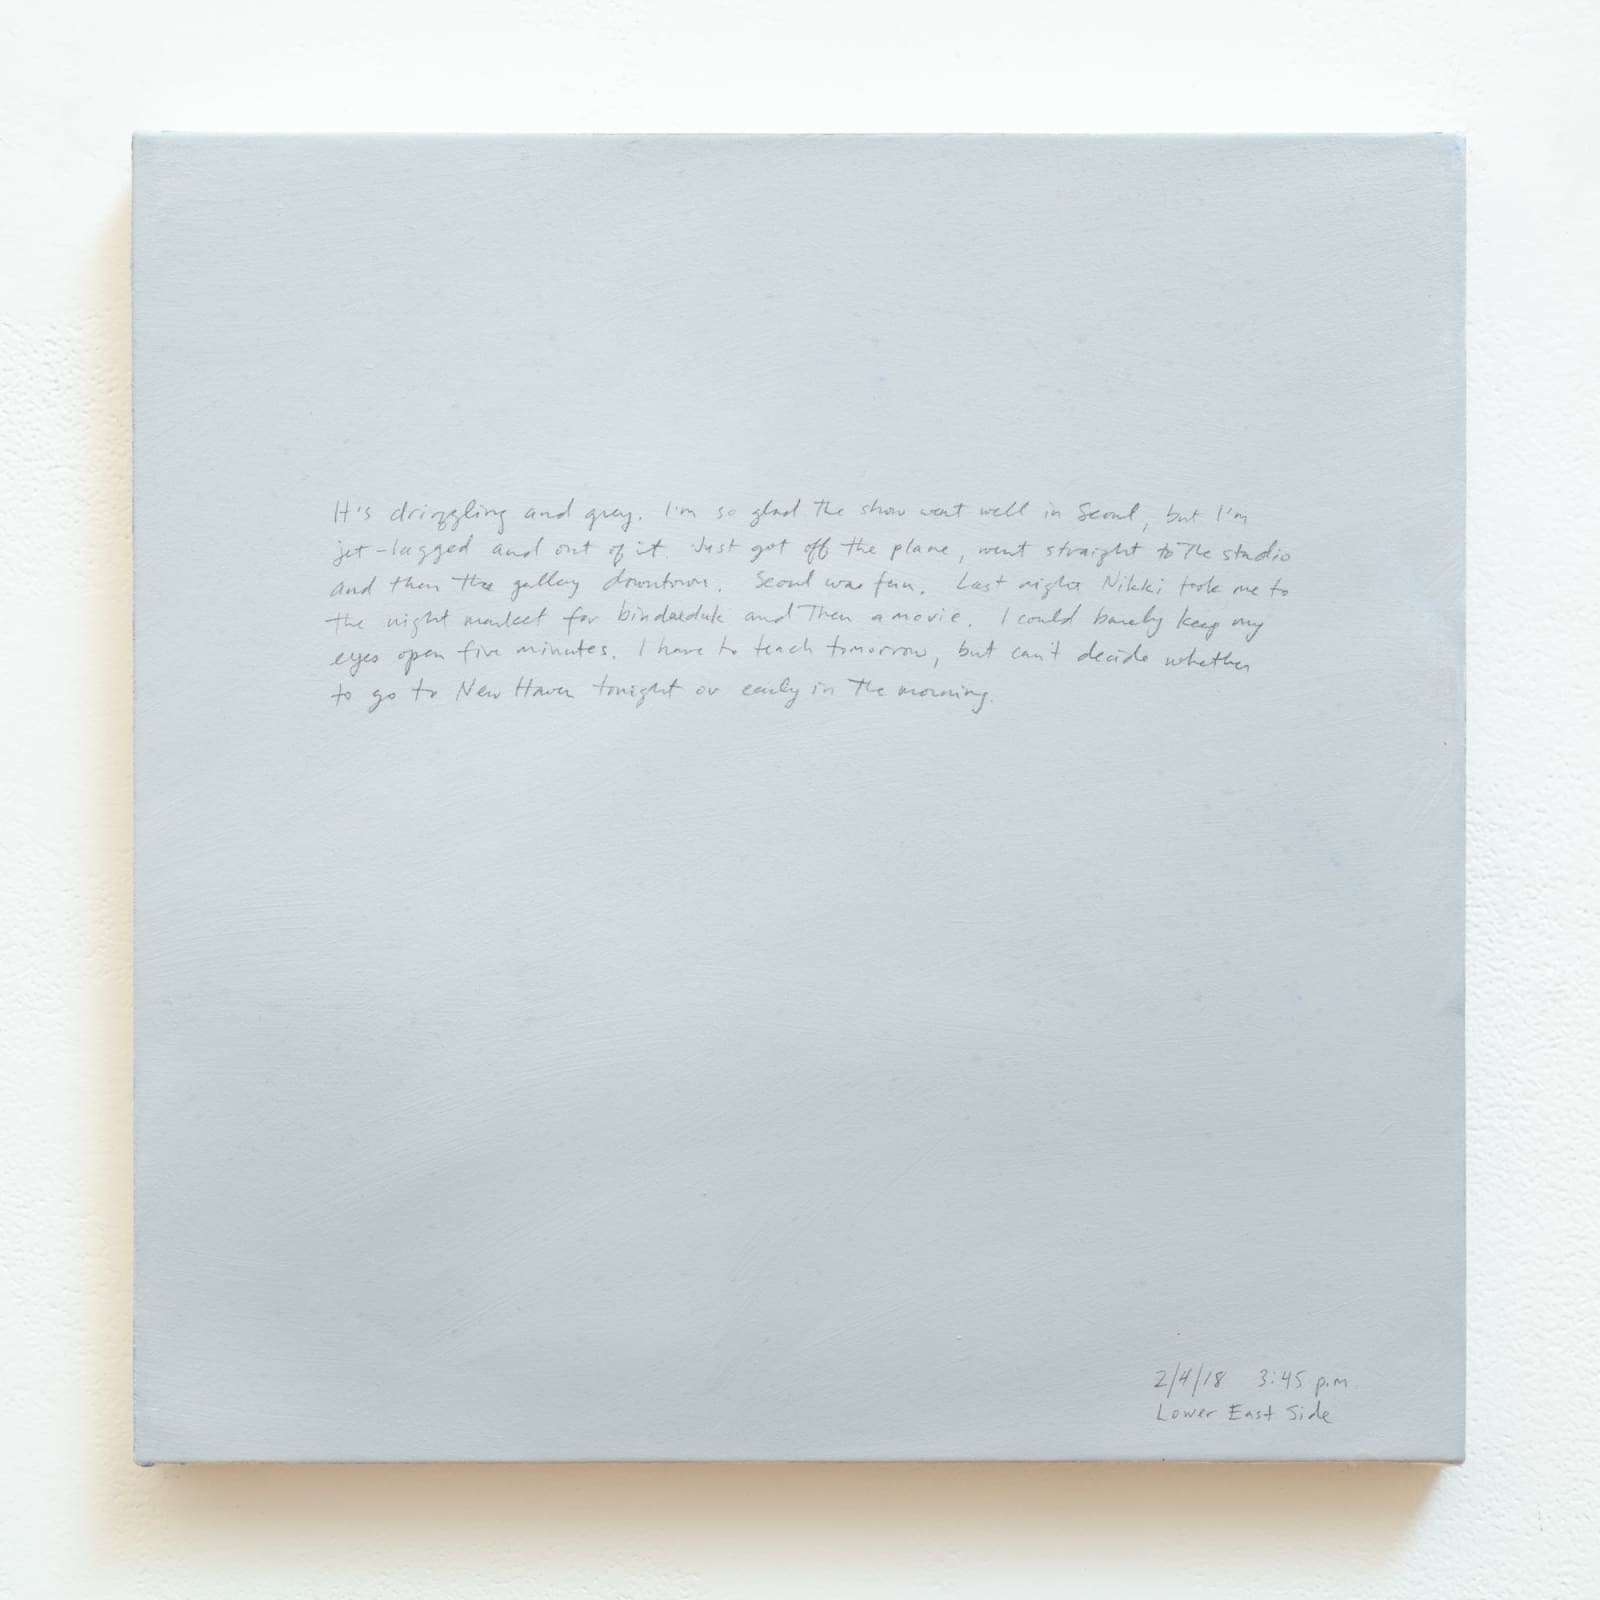 It's drizzling and grey. I'm so glad the show went well in Seoul, but I'm
jet-lagged and out of it. Just got off the plane, went straight to the studio
and then the gallery downtown. Seoul was fun. Last night Nikki took me to
the night market for bindaeduk and then a movie. I could barely keep my
eyes open five minutes. I have to teach tomorrow, but can't decide whether
to go to New Haven tonight or early in the morning.
2/4/18 3:45 p.m.
Lower East Side